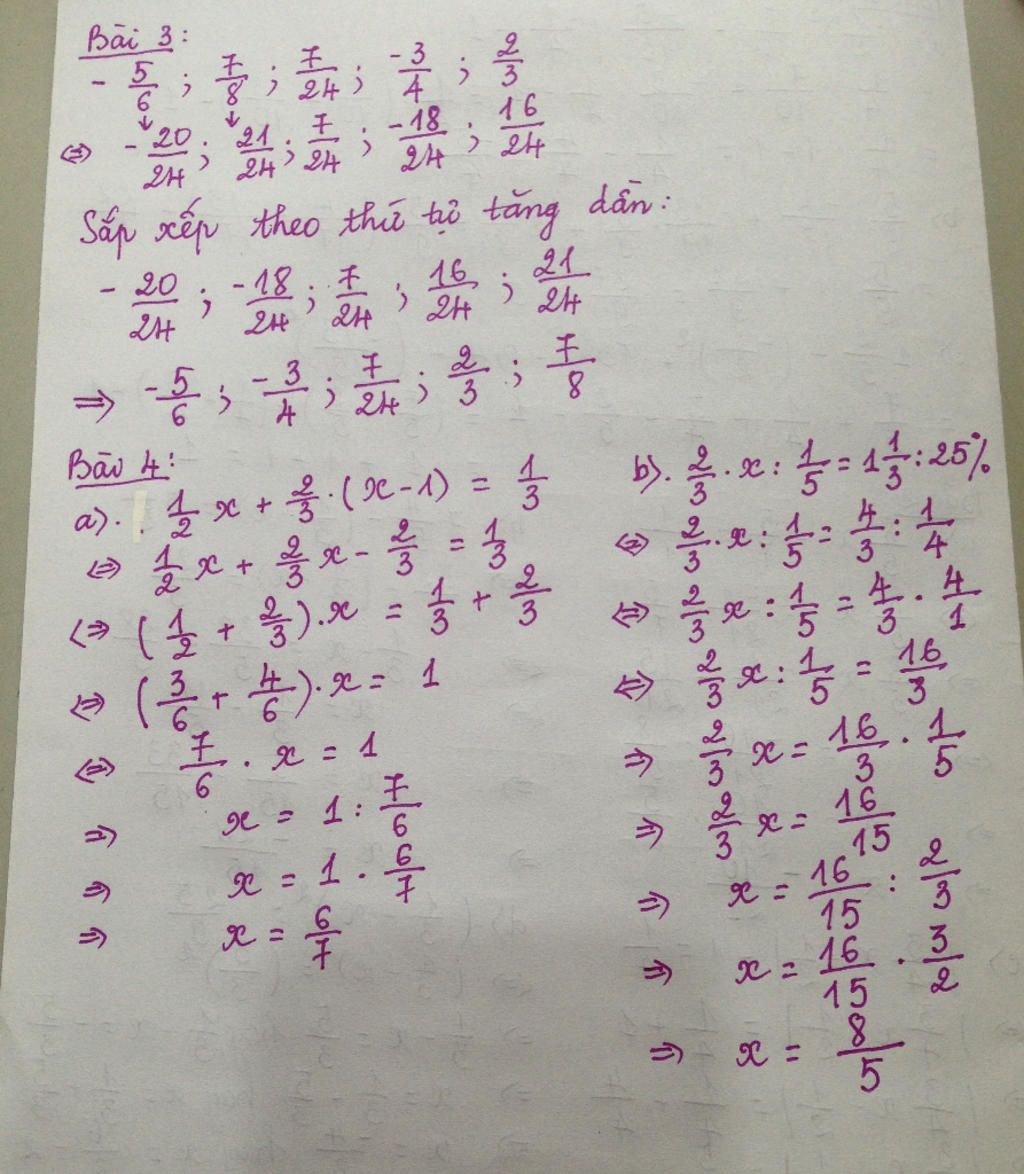 Bài 3:
- 5/6 ; 7/8 ; 7/24 ; -3/4 ; 2/3
⇔ - 20/24 ; 21/24 ; 7/24 ; -18/24 ; 16/24
Sắp xếp theo thứ tự tăng dần:
- 20/24 ; -18/24 ; 7/24 ; 16/24 ; 21/24
⇒ -5/6 ; -3/4 ; 7/24 ; 2/3 ; 7/8
Bài 4:
a). 1/2 x + 2/3 . (x-1) = 1/3
⇔ 1/2 x + 2/3 x - 2/3 = 1/3
⇔ (1/2 + 2/3).x = 1/3 + 2/3
⇔ (3/6 + 4/6).x = 1
⇔ 7/6 . x = 1
⇒ x = 1 : 7/6
⇒ x = 1 . 6/7
⇒ x = 6/7
b). 2/3 . x : 1/5 = 1 1/3 : 25%
⇔ 2/3 . x : 1/5 = 4/3 : 1/4
⇔ 2/3 x : 1/5 = 4/3 . 4/1
⇔ 2/3 x : 1/5 = 16/3
⇒ 2/3 x = 16/3 . 1/5
⇒ 2/3 x = 16/15
⇒ x = 16/15 : 2/3
⇒ x = 16/15 . 3/2
⇒ x = 8/5